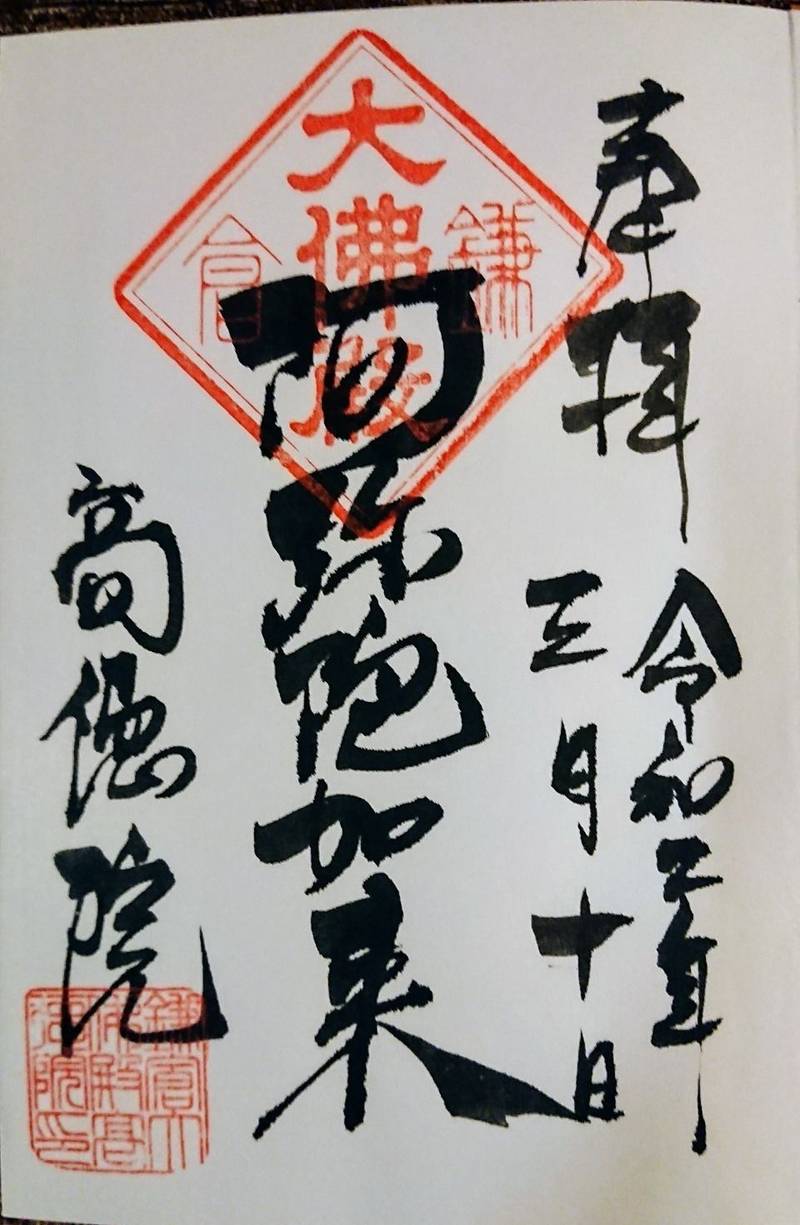 奉拝
令和二年
三月十日
鎌倉
大佛殿
阿弥陀如来
高徳院
鎌倉大
佛殿高
徳院印